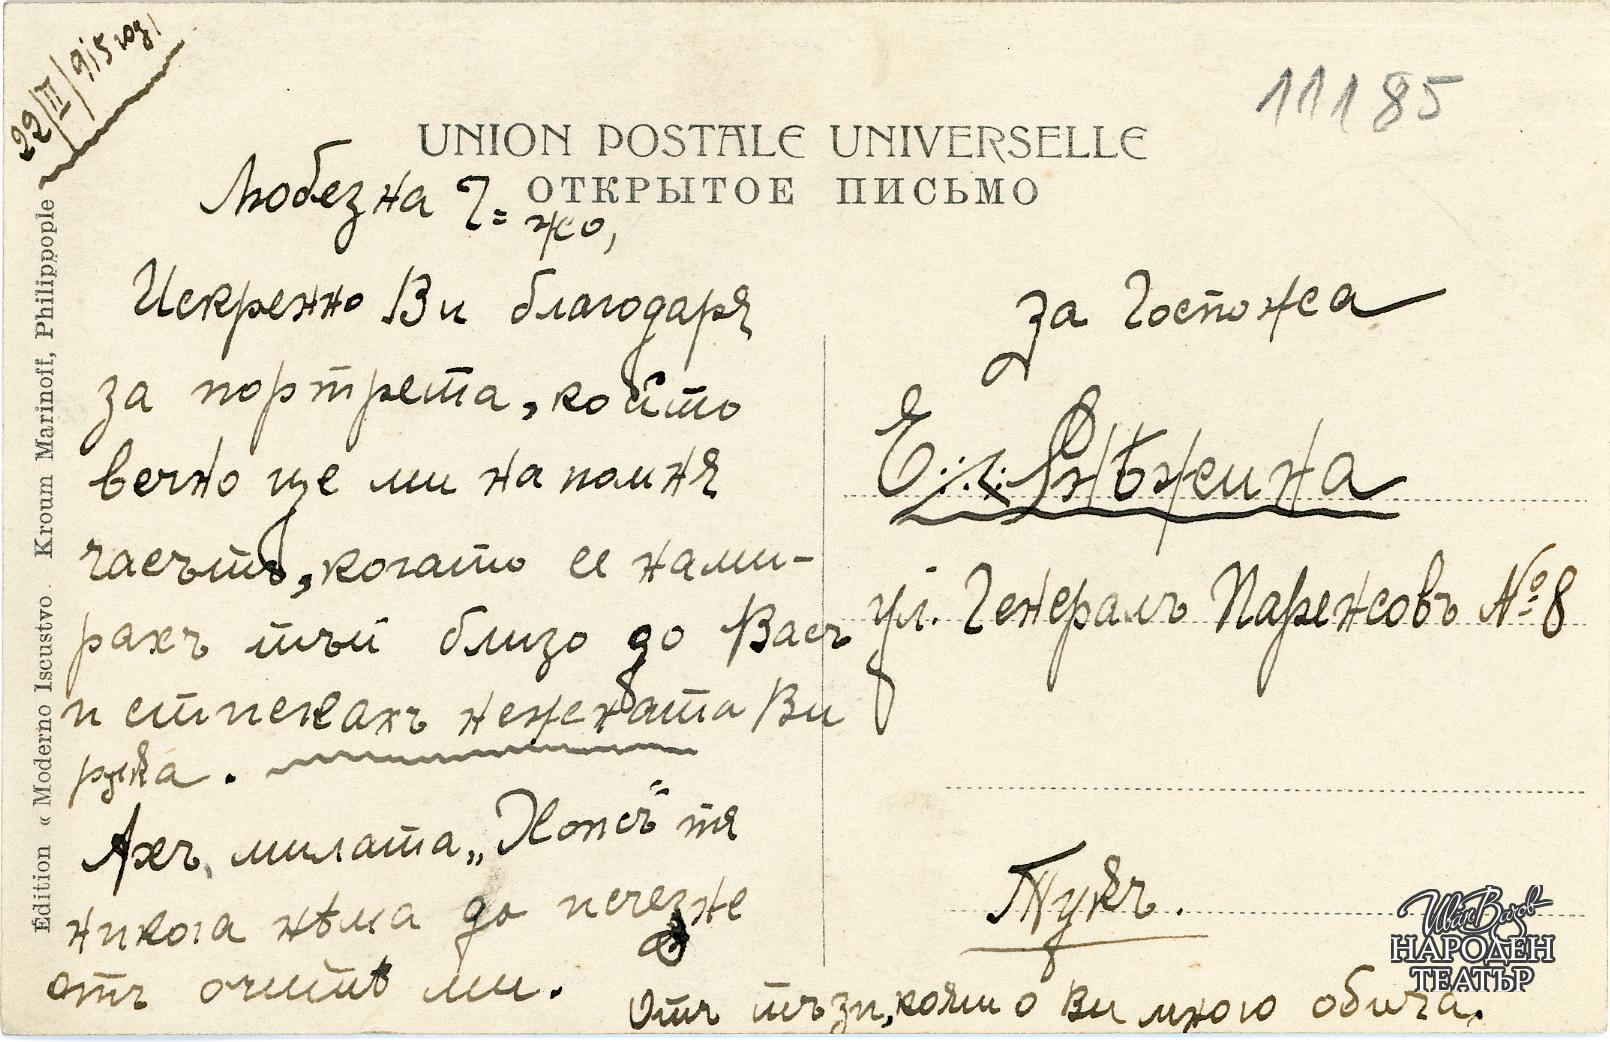 22/III/915 год.
11185
UNION POSTALE UNIVERSELLE
ОТКРЫТОЕ ПИСЬМО
Любезна Г=жо,
Искренно Ви благодаря
за портрета, който
вечно ще ми напомня
часътъ, когато се нами-
рахъ тъй близо до Васъ
и стискахъ нежната Ви
рѫка.
Ахъ, милата „Хопсъ" тя
никога нѣма да исчезне
отъ очитѣ ми.
Отъ тъзи, която Ви много обича.
за Госпожа
Е. Снѣжина
ул. Генералъ Паренсовъ № 8
Тукъ.
Edition « Moderno Iscustvo. Kroum Marinoff, Philippople
Иван Вазов
НАРОДЕН
ТЕАТЪР